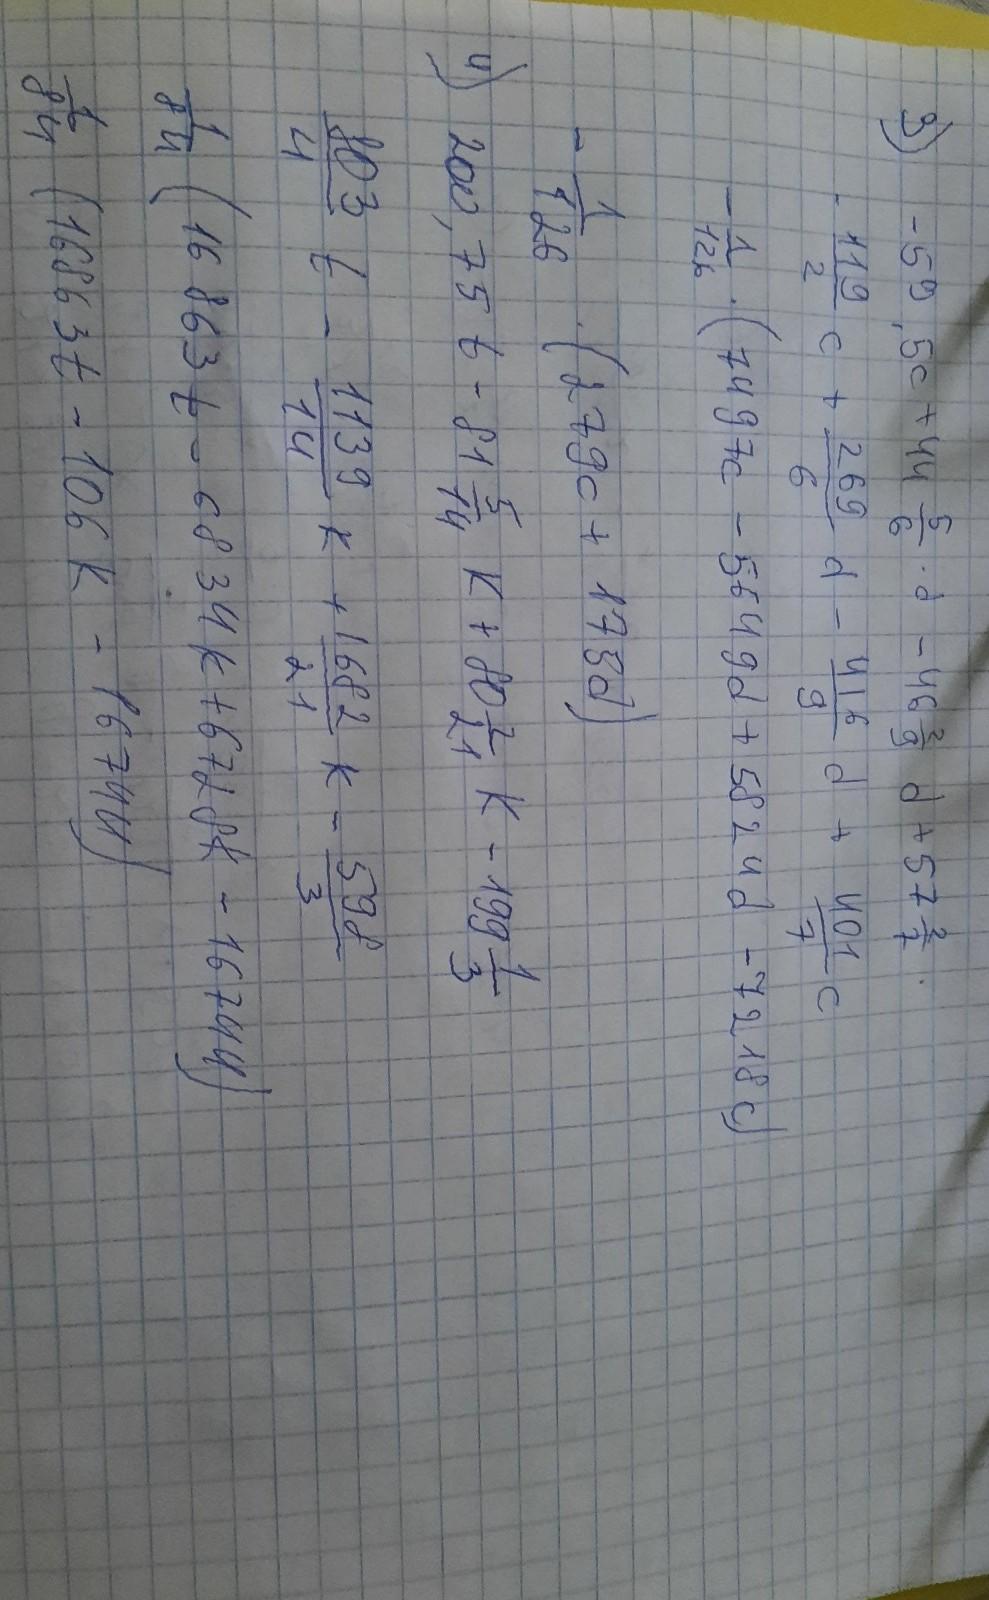 3) -59,5c + 44 5/6 · d - 46 2/9 d + 57 2/7 .
- 119/2 c + 269/6 d - 416/9 d + 401/7 c
- 1/126 · (7497c - 5649d + 5824d - 7218c)
- 1/126 · (279c + 175d)
4) 200,75 t - 81 5/14 k + 80 2/21 k - 199 1/3
803/4 t - 1139/14 k + 1682/21 k - 598/3
1/84 (16863t - 6834k + 6728k - 16744)
1/84 (16863t - 106k - 16744)